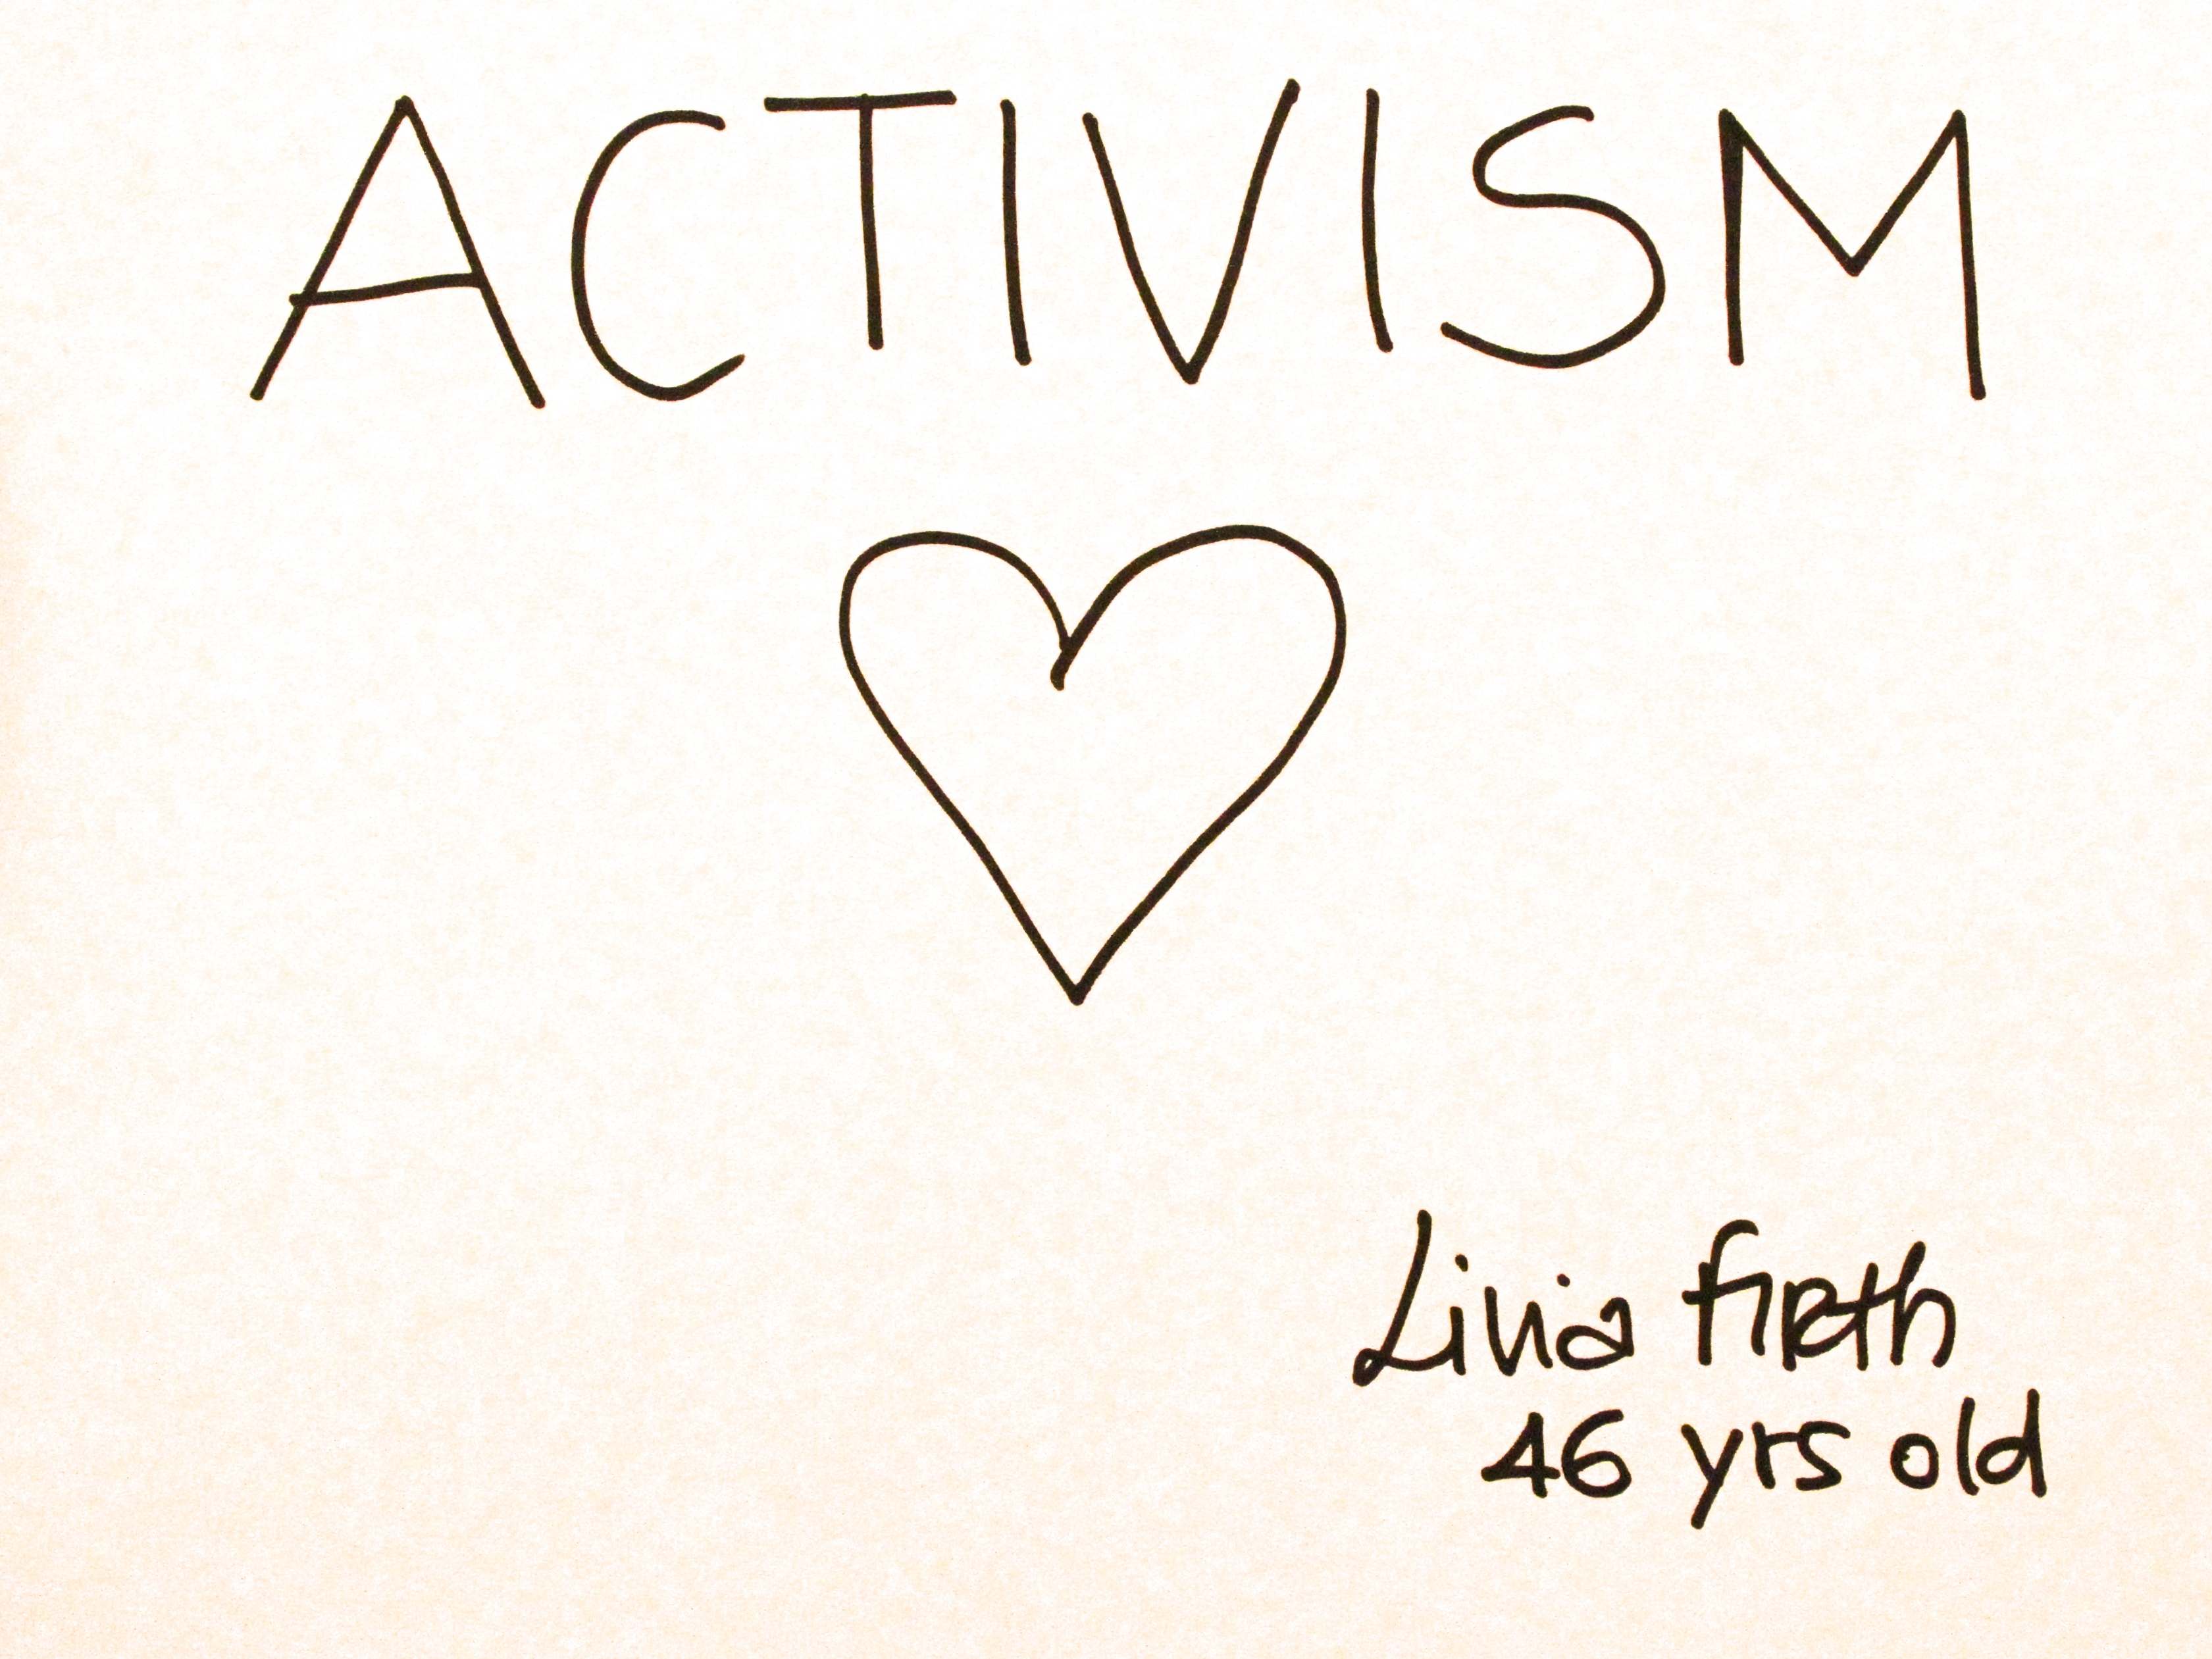 ACTIVISM
Livia Firth
46 yrs old